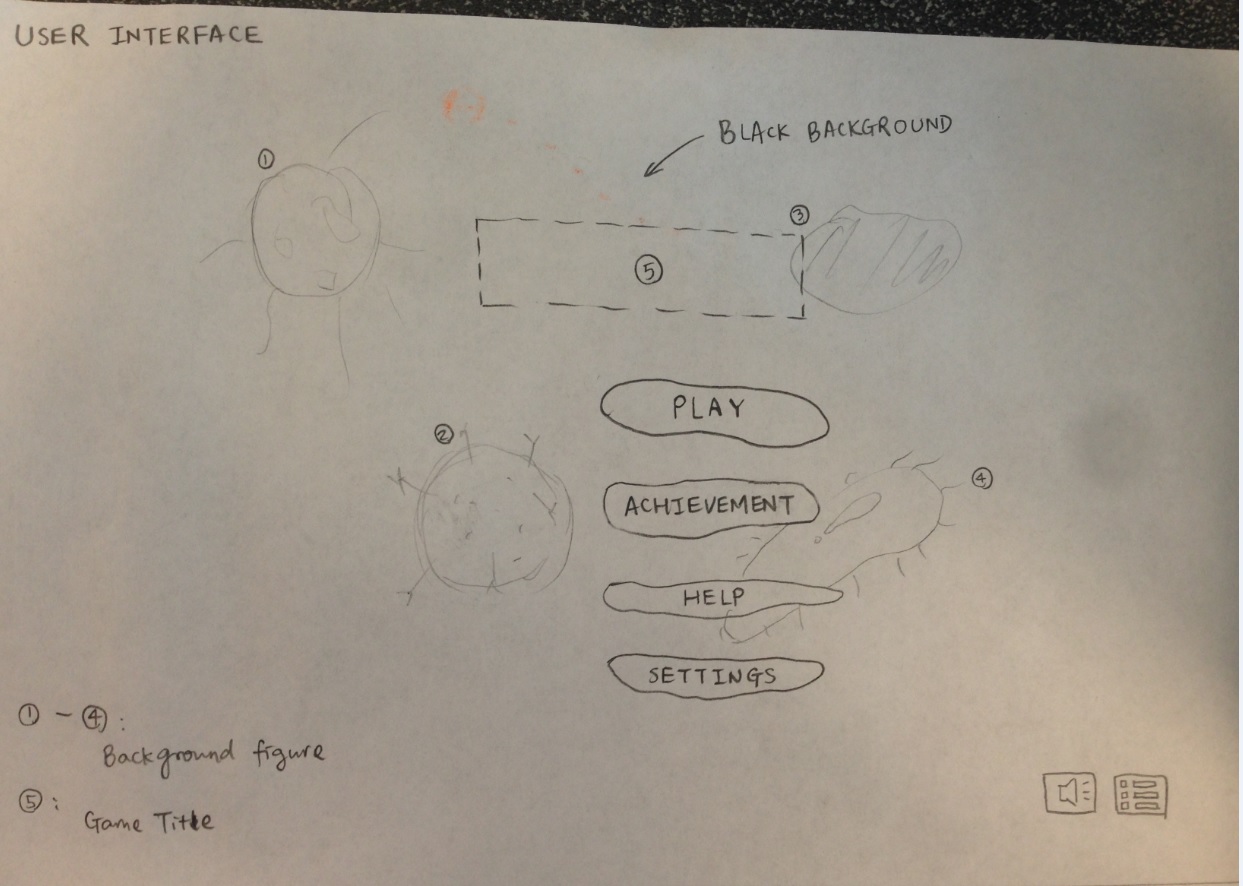 USER INTERFACE
BLACK BACKGROUND
①
③
⑤
PLAY
②
ACHIEVEMENT
④
HELP
SETTINGS
① - ④:
Background figure
⑤:
Game Title